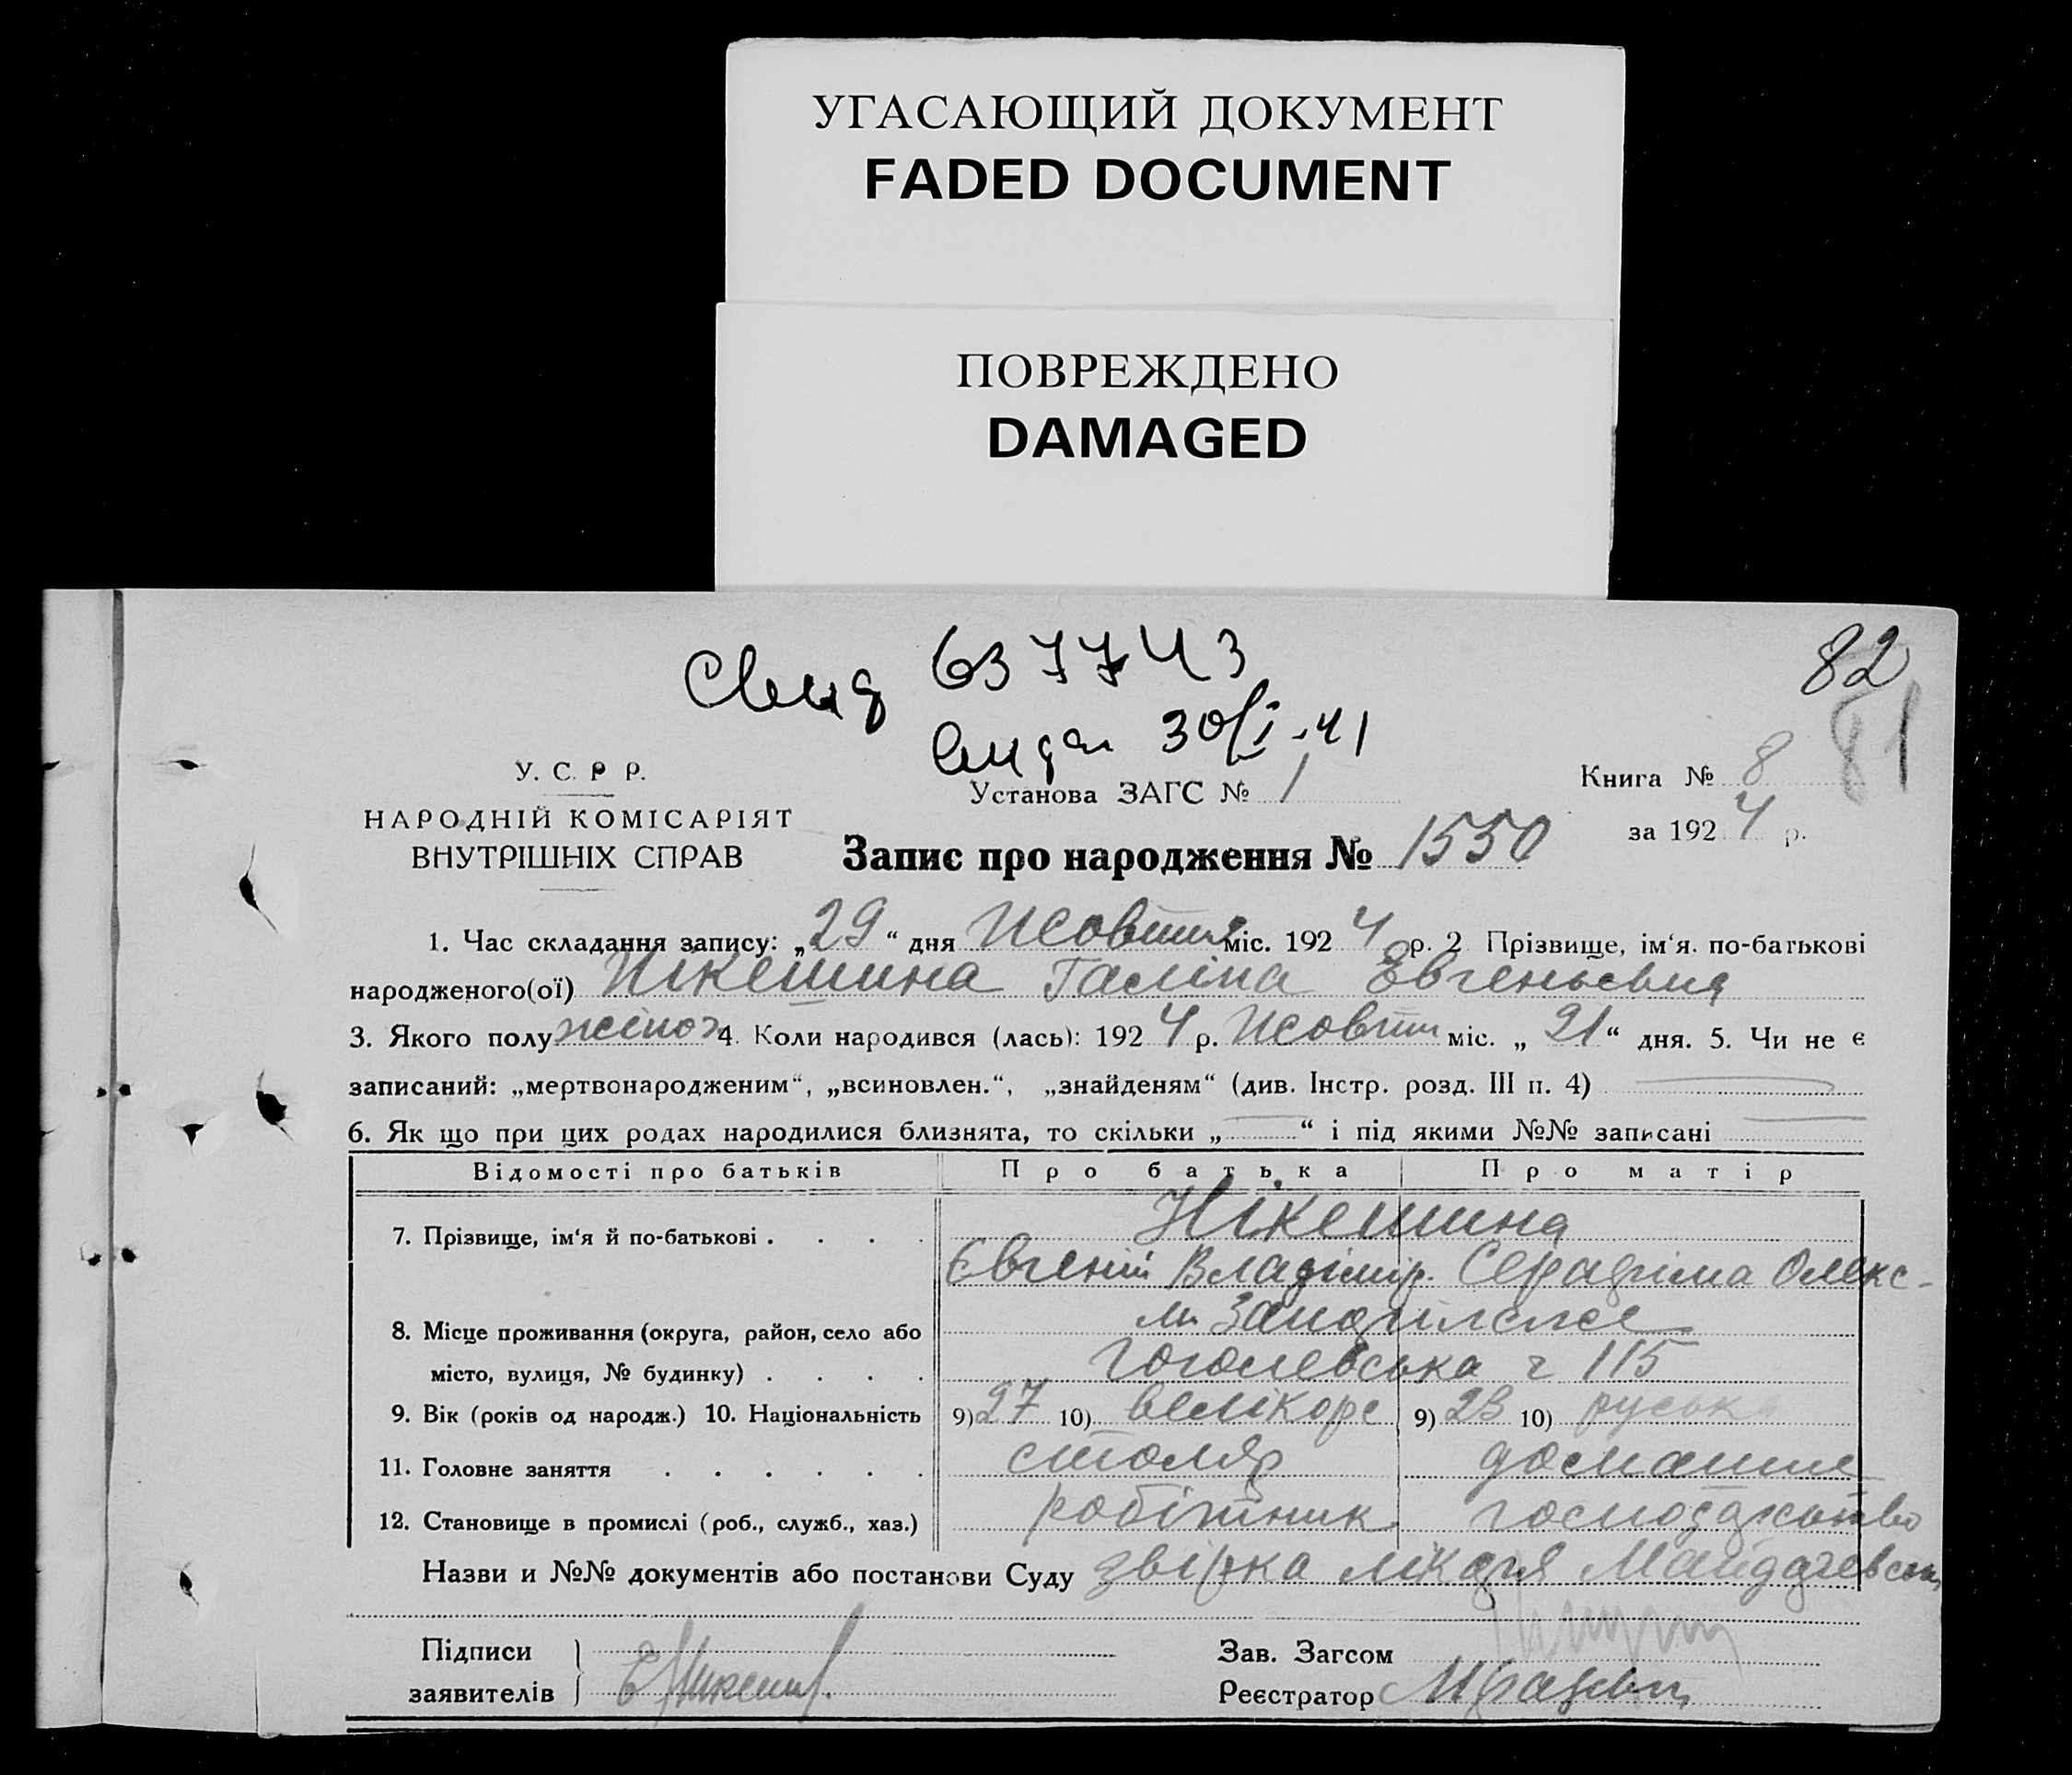 УГАСАЮЩИЙ ДОКУМЕНТ
FADED DOCUMENT
ПОВРЕЖДЕНО
DAMAGED
82
Свид 637743
81
видан 30/I-41
У. С. Р Р.
Установа ЗАГС № 1
Книга № 8
НАРОДНІЙ КОМІСАРІЯТ
за 1924 р.
ВНУТРІШНІХ СПРАВ
Запис про народження № 1550
1. Час складання запису: „29“ дня Жовтня міс. 1924 р. 2 Прізвище, ім‘я. по-батькові
народженого(ої) Нікешина Галіна Євгеньевна
3. Якого полу жіноч 4. Коли народився (лась): 1924 р. Жовтн міс. „21“ дня. 5. Чи не є
записаний: „мертвонародженим“, „всиновлен.“, „знайденям“ (див. Інстр. розд. III п. 4)
6. Як що при цих родах народилися близнята, то скільки „ “ і під якими №№ записані
Відомості про батьків Про батька Про матір
Нікешина
7. Прізвище, ім‘я й по-батькові . . . .
Євгеній Владімір. Серафіма Олекс-
8. Місце проживання (округа, район, село або
м.
місто, вулиця, № будинку) . . . . Гоголевська ч 115
9. Вік (років од народж.) 10. Національність 9) 27 10) велікорс 9) 23 10) руська
11. Головне заняття . . . . . . столяр домашнє
12. Становище в промислі (роб., служб., хаз.) робітник господарство
Назви и №№ документів або постанови Суду звістка лікаря
Підписи
Зав. Загсом
заявителів
Реєстратор